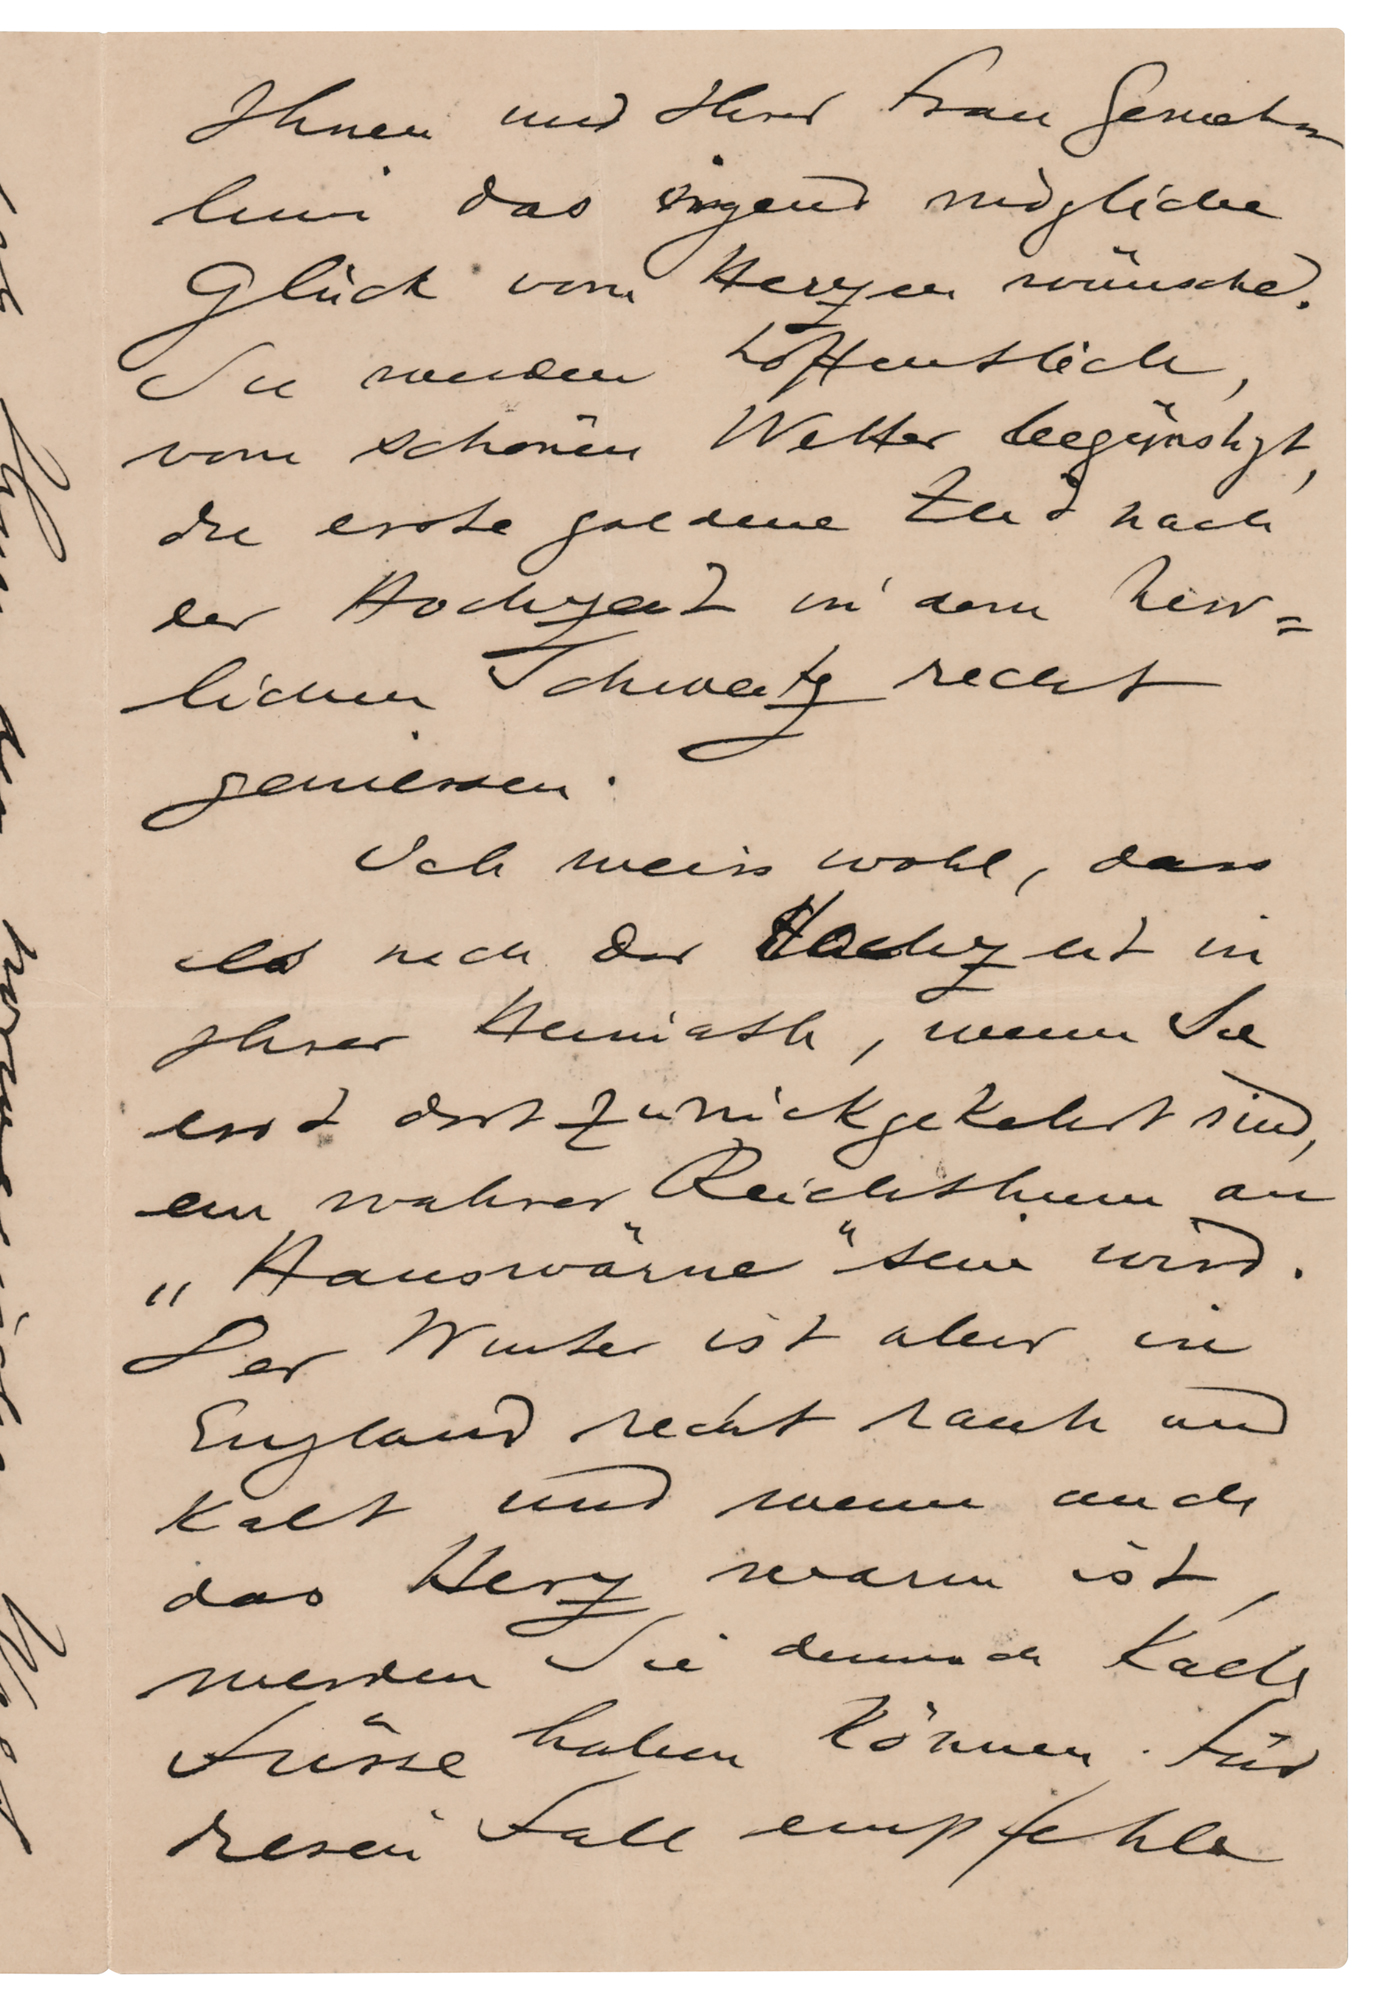 Ihnen und Ihrer Frau Gemah
lin das irgend mögliche
Glück vom Herzen wünsche.
Sie werden hoffentlich,
vom schönen Wetter begünstigt,
die erste goldene Zeit nach
der Hochzeit in dem herr=
lichen Schweitz recht
geniessen.
Ich weiss wohl, dass
es nach der Hochzeit in
Ihrer Heimath, wenn Sie
erst dort zurückgekehrt sind,
ein wahrer Reichthum an
„Hauswärme" sein wird.
Der Winter ist aber in
England recht rauh und
kalt und wenn auch
das Herz warm ist,
werden Sie dennoch kalte
Füsse haben können. Für
diesen Fall empfehle